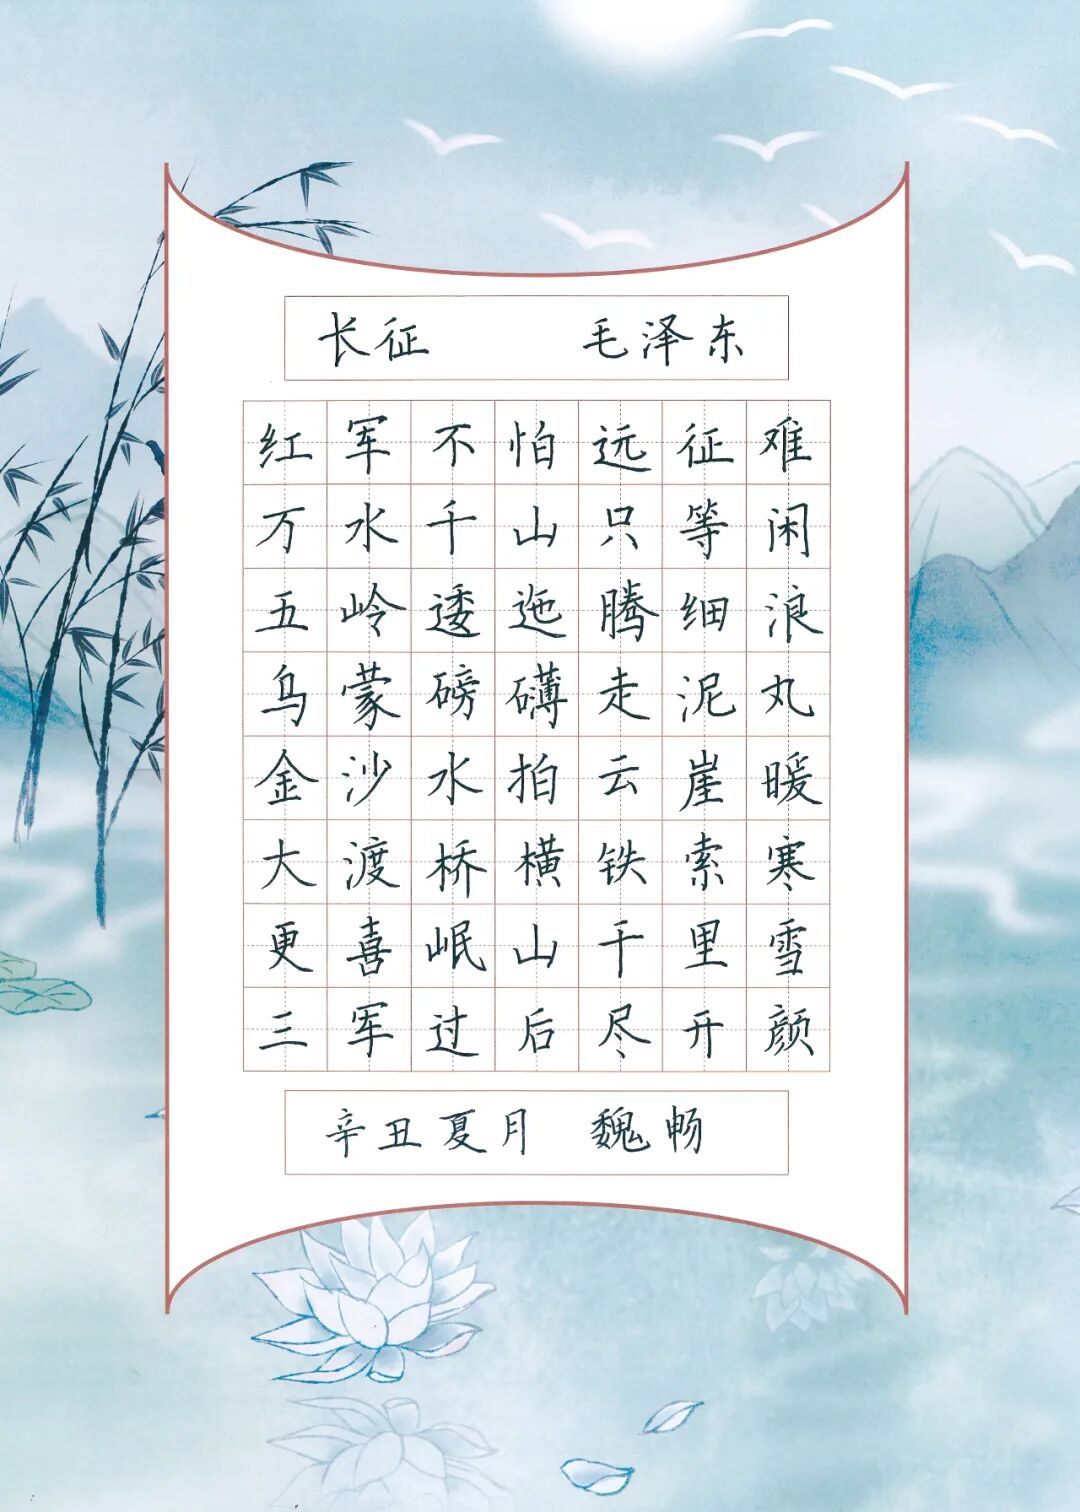 长征 毛泽东
红军不怕远征难
万水千山只等闲
五岭逶迤腾细浪
乌蒙磅礴走泥丸
金沙水拍云崖暖
大渡桥横铁索寒
更喜岷山千里雪
三军过后尽开颜
辛丑夏月 魏畅